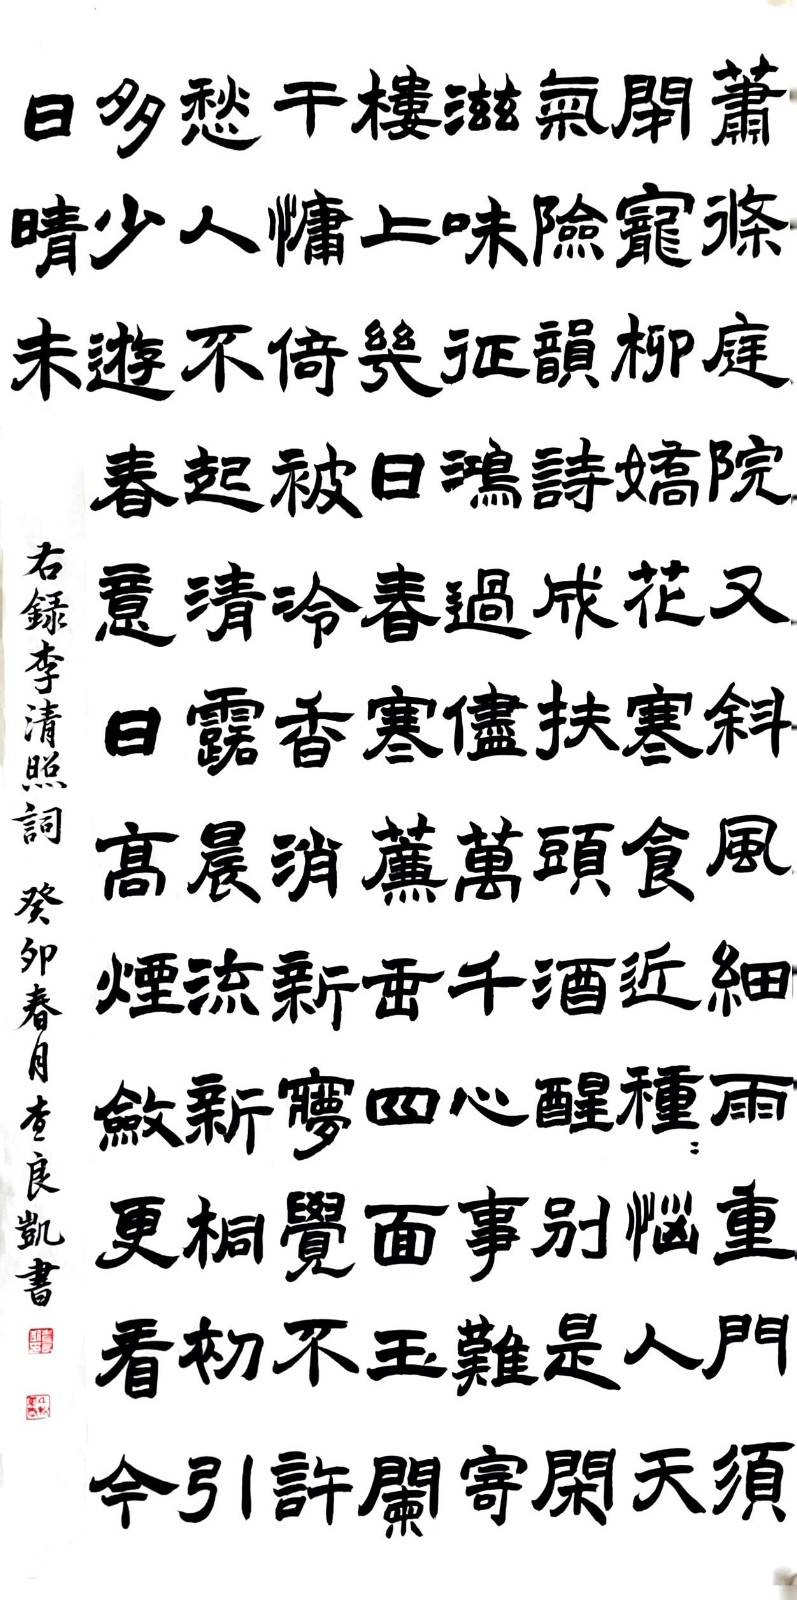 蕭條庭院又斜風細雨重門須
閉寵柳嬌花寒食近種〻惱人天
氣險韻詩成扶頭酒醒別是閑
滋味征鴻過儘萬千心事難寄
樓上幾日春寒簾垂四面玉闌
干慵倚被冷香消新夢覺不許
愁人不起清露晨流新桐初引
多少遊春意日高煙斂更看今
日晴未
右録李清照詞 癸卯春月查良凱書